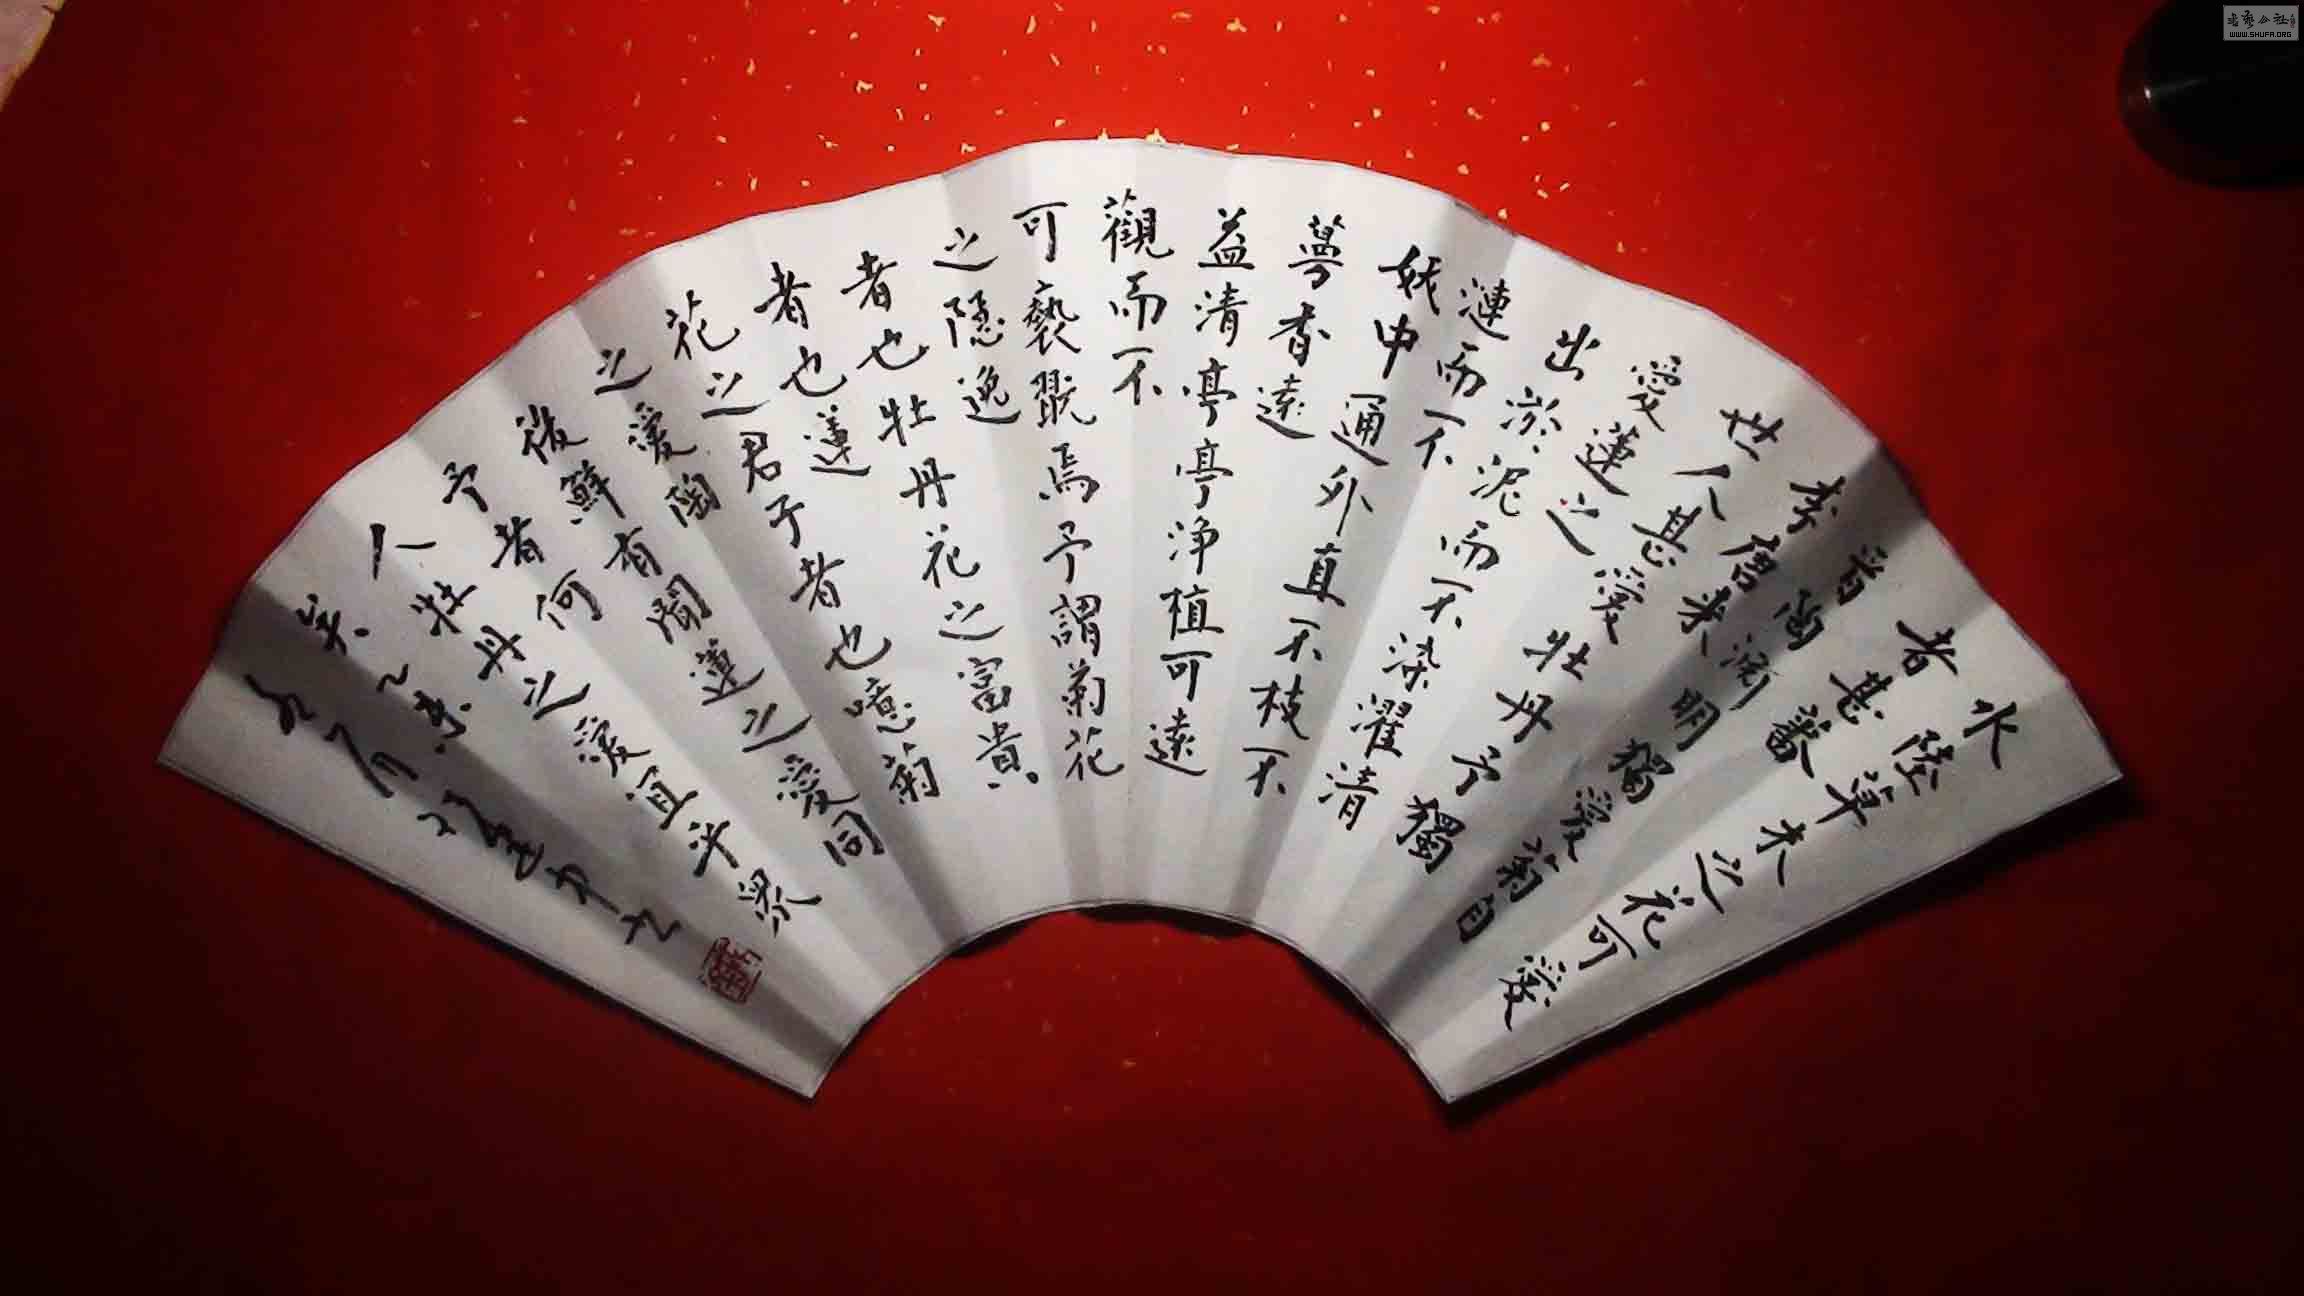 水陸草木之花可愛
者甚蕃
晉陶淵明獨愛菊自
李唐来
世人甚愛牡丹予獨
愛蓮之
出淤泥而不染濯清
漣而不
妖中通外直不枝不
蔓香遠
益清亭亭浄植可遠
觀而不
可褻翫焉予謂菊花
之隱逸
者也牡丹花之富貴
者也蓮
花之君子者也噫菊
之愛陶
後鮮有聞蓮之愛同
予者何
人牡丹之愛宜乎眾
矣乙未
九月
WWW.SHUFA.ORG